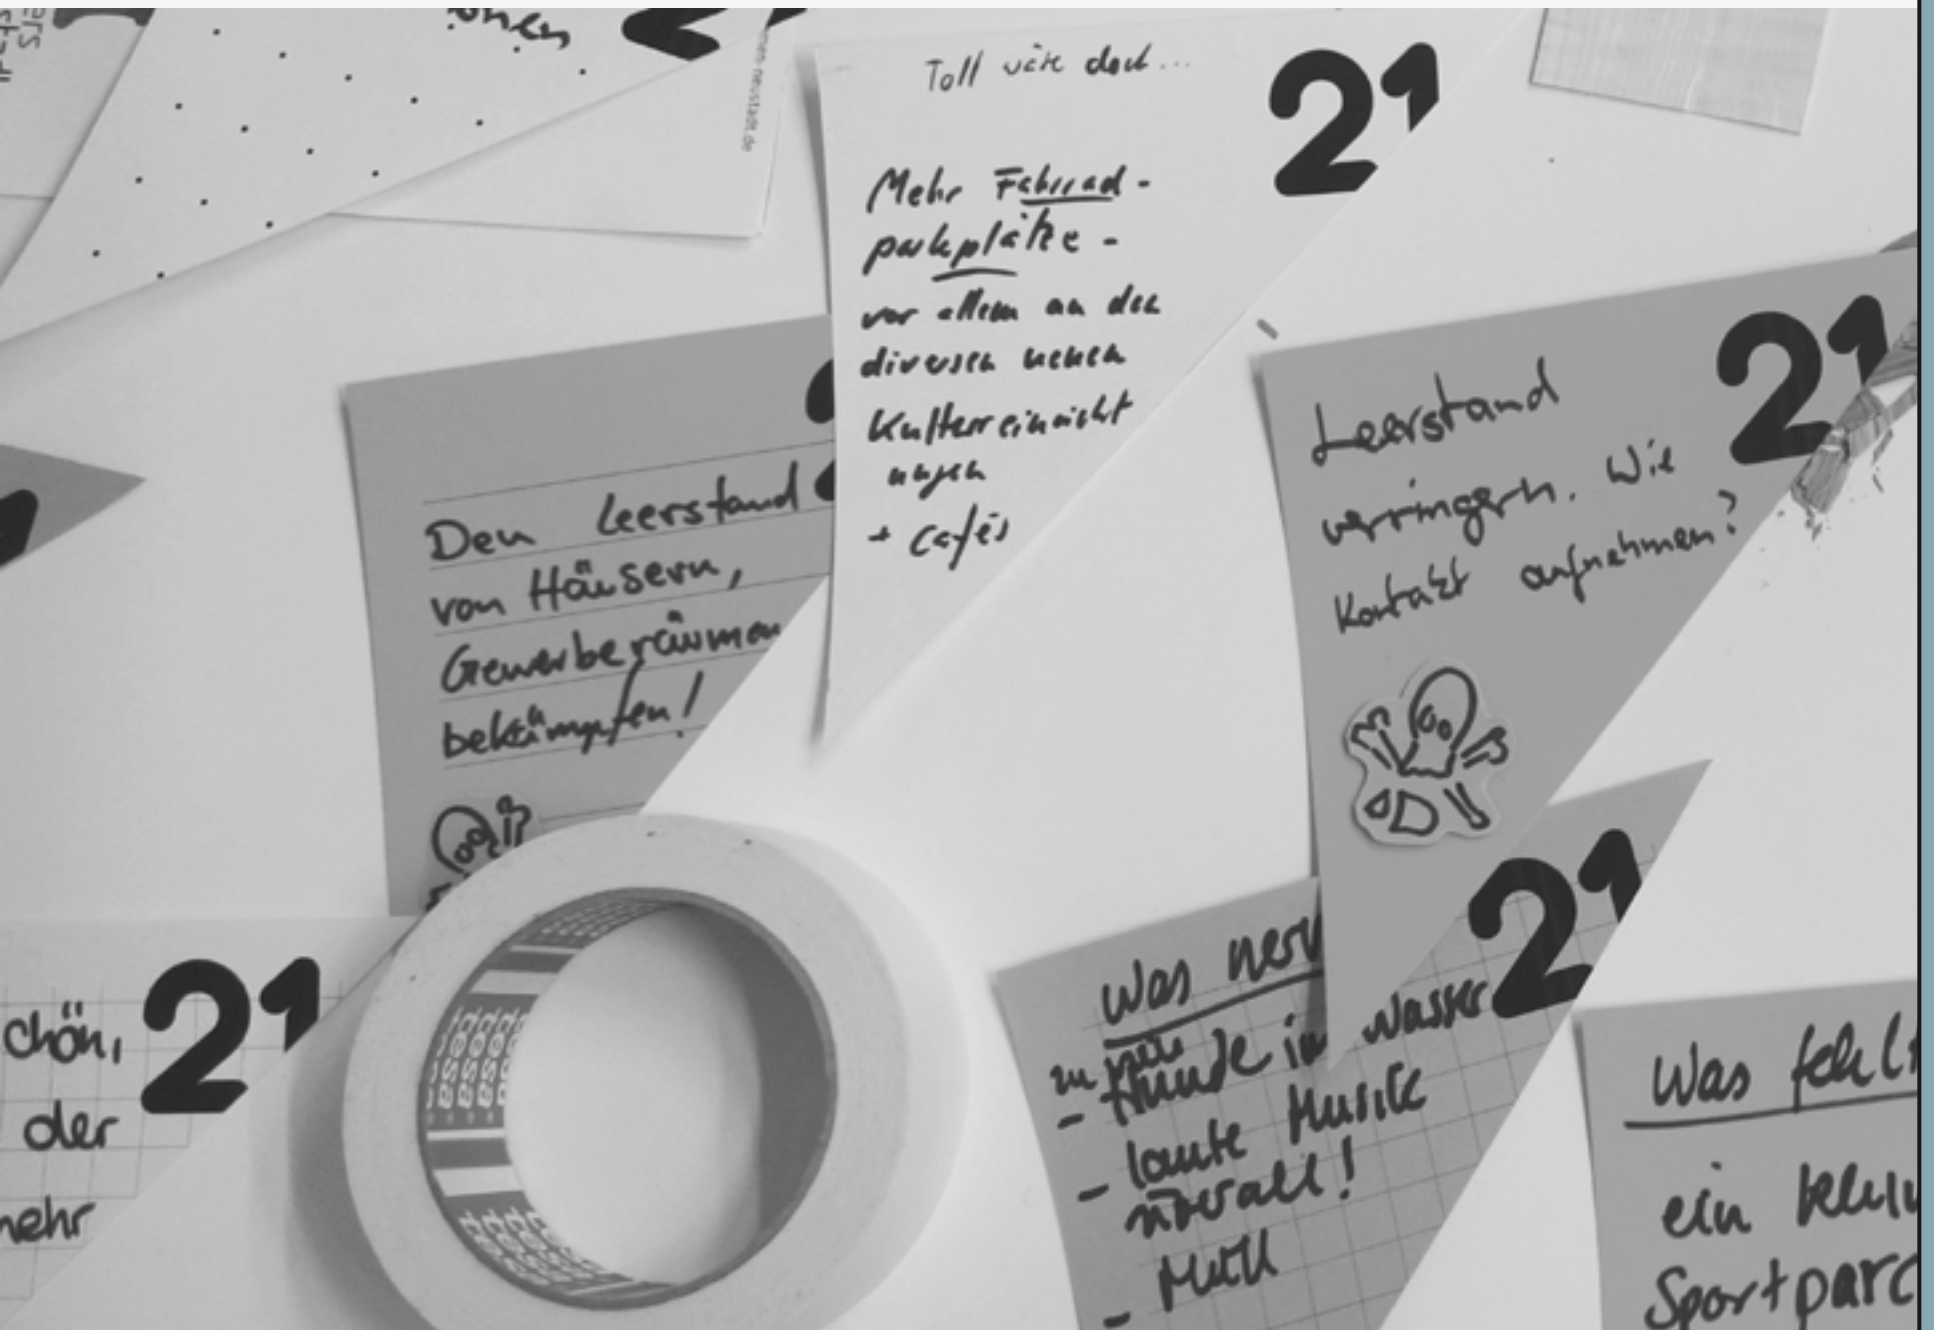 21
Toll wäre doch...
Mehr Fahrrad-
parkplätze -
vor allem an den
diversen neuen
Kultureinricht
ungen
+ Cafés
Den Leerstand
von Häusern,
Gewerberäumen
bekämpfen!
21
Leerstand
verringern. Wie
Kontakt aufnehmen?
21
chön,
der
mehr
tesa
21
Was nerv
- Hunde im Wasser
- laute Musik
überall!
- Müll
Was fehlt
ein
Sportparc